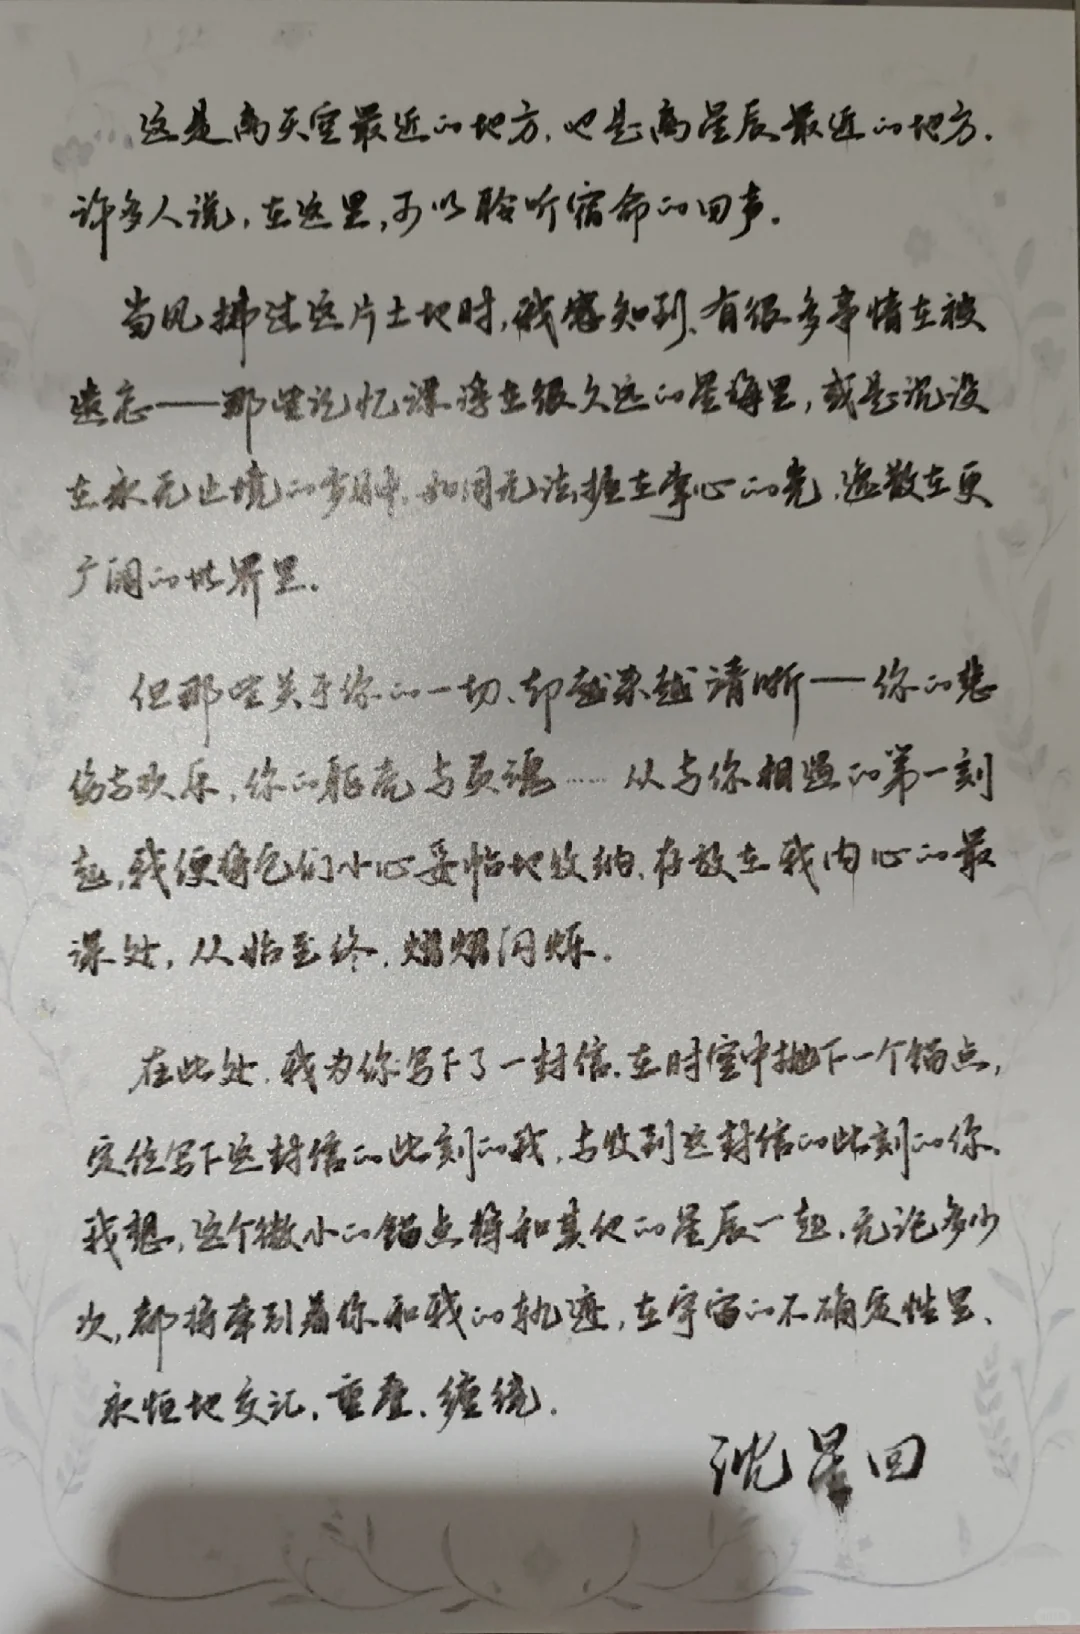 这是离天空最近的地方,也是离星辰最近的地方.
许多人说,在这里,可以聆听宿命的回声.
当风拂过这片土地时,我感知到、有很多事情在被
遗忘——那些记忆深浮在很久远的星海里,或是沉没
在永无止境的岁月中,如同无法握在掌心的光,逸散在更
广阔的世界里.
但那些关于你的一切、却越来越清晰——你的悲
伤与欢乐,你的躯壳与灵魂……从与你相遇的第一刻
起,我便将它们小心妥帖地收纳、存放在我内心的最
深处,从始至终,熠熠闪烁.
在此处,我为你写下了一封信,在时空中抛下一个锚点,
定位写下这封信的此刻的我,与收到这封信的此刻的你.
我想,这个微小的锚点将和其他的星辰一起,无论多少
次,都将牵引着你和我的轨迹,在宇宙的不确定性里、
永恒地交汇,重叠、缠绕.
沈星回